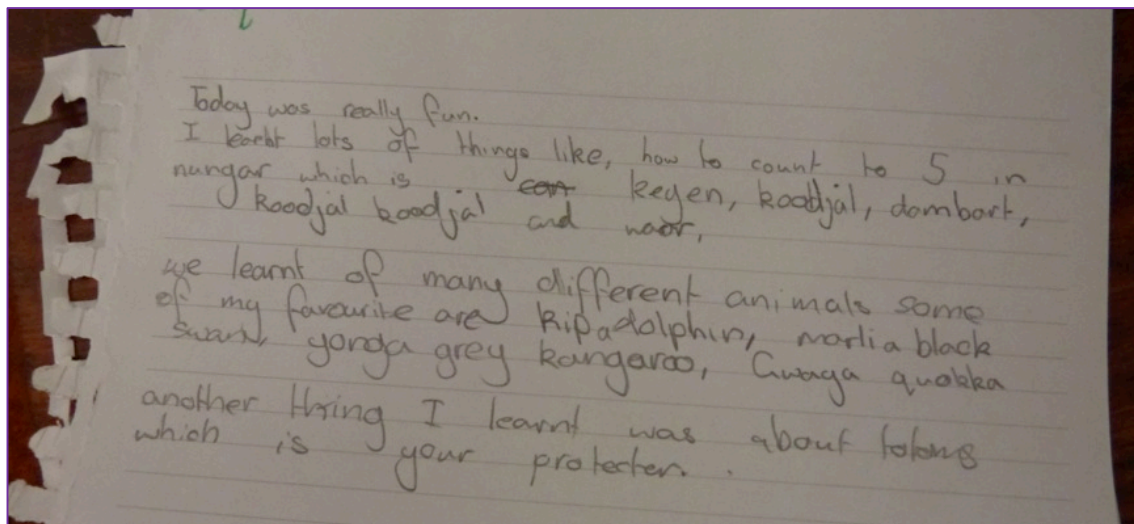 Today was really fun.
I learnt lots of things like, how to count to 5 in
nungar which is keyen, koodjal, dambart,
koodjal koodjal and
we learnt of many different animals some
of my favourite are kip a dolphin, marli a black
swan, yonga grey kangaroo, Gwaga quokka
another thing I learnt was about totoms
which is your protecter. .